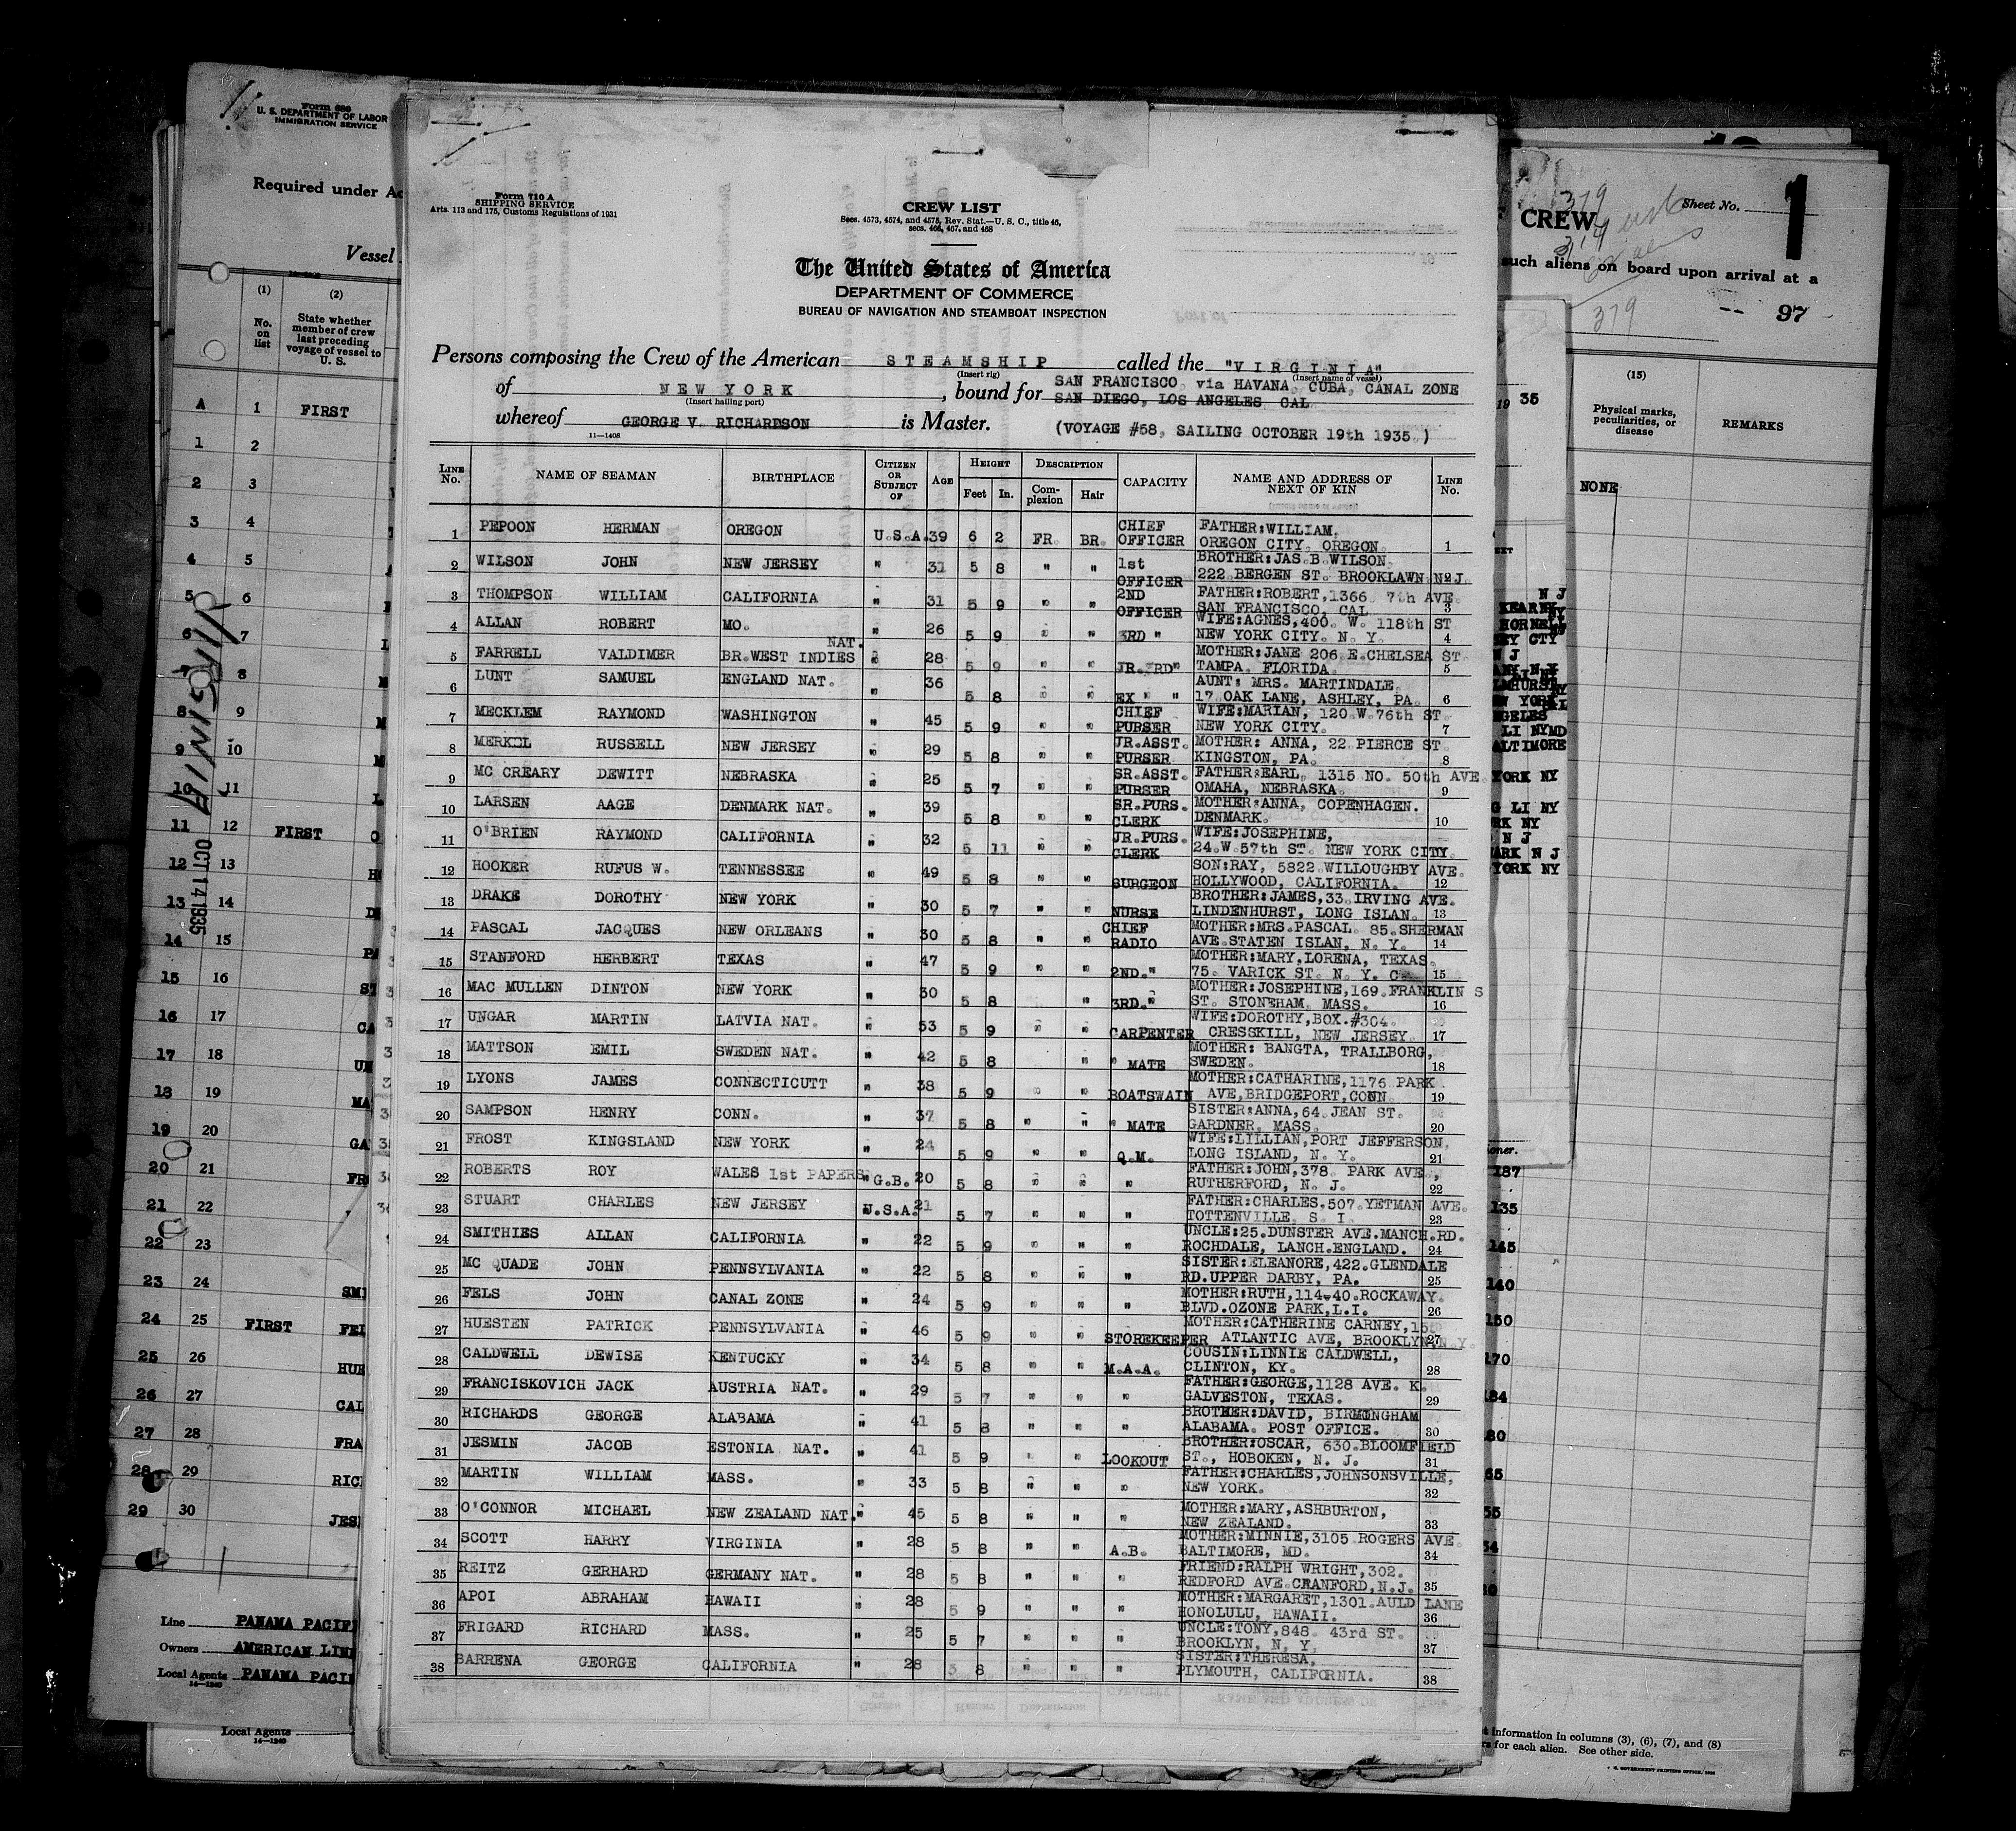 Form 710 A
SHIPPING SERVICE
Arts. 113 and 175, Customs Regulations of 1931
CREW LIST
Secs. 4573, 4574, and 4575, Rev. Stat.—U. S. C., title 46,
secs. 466, 467, and 468
The United States of America
DEPARTMENT OF COMMERCE
BUREAU OF NAVIGATION AND STEAMBOAT INSPECTION
Persons composing the Crew of the American STEAMSHIP called the "VIRGINIA"
(Insert rig) (Insert name of vessel)
of NEW YORK, bound for SAN FRANCISCO, via HAVANA, CUBA, CANAL ZONE
(Insert hailing port) SAN DIEGO, LOS ANGELES CAL
whereof GEORGE V. RICHARDSON is Master. (VOYAGE #58, SAILING OCTOBER 19th 1935.)
11—1408
LINE No. NAME OF SEAMAN BIRTHPLACE CITIZEN OR SUBJECT OF AGE HEIGHT Feet In. DESCRIPTION Complexion Hair CAPACITY NAME AND ADDRESS OF NEXT OF KIN LINE No.
1 PEPOON HERMAN OREGON U.S.A. 39 6 2 FR. BR. CHIEF OFFICER FATHER:WILLIAM, OREGON CITY, OREGON. 1
2 WILSON JOHN NEW JERSEY " 31 5 8 " " 1st OFFICER BROTHER:JAS.B.WILSON. 222 BERGEN ST. BROOKLAWN N.J. 2
3 THOMPSON WILLIAM CALIFORNIA " 31 5 9 " " 2ND OFFICER FATHER:ROBERT,1366 7th AVE. SAN FRANCISCO, CAL 3
4 ALLAN ROBERT MO. " 26 5 9 " " 3RD " WIFE:AGNES,400. W. 118th ST NEW YORK CITY. N. Y. 4
5 FARRELL VALDIMER BR.WEST INDIES NAT. " 28 5 9 " " JR.3RD" MOTHER:JANE 206 E.CHELSEA ST. TAMPA. FLORIDA. 5
6 LUNT SAMUEL ENGLAND NAT. " 36 5 8 " " EX " " AUNT: MRS. MARTINDALE. 17 OAK LANE, ASHLEY, PA. 6
7 MECKLEM RAYMOND WASHINGTON " 45 5 9 " " CHIEF PURSER WIFE:MARIAN, 120.W.76th ST. NEW YORK CITY. 7
8 MERKEL RUSSELL NEW JERSEY " 29 5 8 " " JR.ASST. PURSER MOTHER: ANNA, 22 PIERCE ST. KINGSTON, PA. 8
9 MC CREARY DEWITT NEBRASKA " 25 5 7 " " SR.ASST. PURSER FATHER:EARL, 1315 NO. 50th AVE. OMAHA, NEBRASKA. 9
10 LARSEN AAGE DENMARK NAT. " 39 5 8 " " SR.PURS. CLERK MOTHER:ANNA, COPENHAGEN. DENMARK. 10
11 O'BRIEN RAYMOND CALIFORNIA " 32 5 11 " " JR.PURS. CLERK WIFE:JOSEPHINE, 24.W.57th ST. NEW YORK CITY. 11
12 HOOKER RUFUS W. TENNESSEE " 49 5 8 " " SURGEON SON:RAY, 5822 WILLOUGHBY AVE. HOLLYWOOD, CALIFORNIA. 12
13 DRAKE DOROTHY NEW YORK " 30 5 7 " " NURSE BROTHER:JAMES,33.IRVING AVE. LINDENHURST, LONG ISLAN. 13
14 PASCAL JACQUES NEW ORLEANS " 30 5 8 " " CHIEF RADIO MOTHER:MRS.PASCAL. 85.SHERMAN AVE.STATEN ISLAN, N. Y. 14
15 STANFORD HERBERT TEXAS " 47 5 9 " " 2ND." MOTHER:MARY,LORENA, TEXAS. 75. VARICK ST. N. Y. C. 15
16 MAC MULLEN DINTON NEW YORK " 30 5 8 " 3RD." MOTHER:JOSEPHINE,169.FRANKLIN S ST. STONEHAM. MASS. 16
17 UNGAR MARTIN LATVIA NAT. " 53 5 9 " " CARPENTER WIFE:DOROTHY,BOX.#304. CRESSKILL, NEW JERSEY 17
18 MATTSON EMIL SWEDEN NAT. " 42 5 8 " " MATE MOTHER: BANGTA, TRALLBORG, SWEDEN. 18
19 LYONS JAMES CONNECTICUTT " 38 5 9 " " BOATSWAIN MOTHER:CATHARINE,1176 PARK AVE,BRIDGEPORT,CONN. 19
20 SAMPSON HENRY CONN. " 37 5 8 " " " MATE SISTER:ANNA,64.JEAN ST. GARDNER. MASS. 20
21 FROST KINGSLAND NEW YORK " 24 5 9 " " Q.M. WIFE:LILLIAN,PORT JEFFERSON. LONG ISLAND, N. Y. 21
22 ROBERTS ROY WALES 1st PAPERS "G.B. 20 5 8 " " " FATHER:JOHN,378. PARK AVE., RUTHERFORD, N. J. 22
23 STUART CHARLES NEW JERSEY U.S.A. 21 5 7 " " " FATHER:CHARLES,507.YETMAN AVE. TOTTENVILLE, S. I. 23
24 SMITHIES ALLAN CALIFORNIA " 22 5 9 " " " UNCLE:25.DUNSTER AVE.MANCH.RD. ROCHDALE, LANCH.ENGLAND. 24
25 MC QUADE JOHN PENNSYLVANIA " 22 5 8 " " " SISTER:ELEANORE,422.GLENDALE RD.UPPER DARBY, PA. 25
26 FELS JOHN CANAL ZONE " 24 5 9 " " " MOTHER:RUTH,114-40.ROCKAWAY. BLVD.OZONE PARK,L.I. 26
27 HUESTEN PATRICK PENNSYLVANIA " 46 5 9 " " STOREKEEPER MOTHER:CATHERINE CARNEY, ATLANTIC AVE, BROOKLYN N.Y. 27
28 CALDWELL DEWISE KENTUCKY " 34 5 8 " " M.A.A. COUSIN:LINNIE CALDWELL, CLINTON, KY. 28
29 FRANCISKOVICH JACK AUSTRIA NAT. " 29 5 7 " " " FATHER:GEORGE,1128 AVE. K. GALVESTON, TEXAS. 29
30 RICHARDS GEORGE ALABAMA " 41 5 8 " " " BROTHER:DAVID, BIRMINGHAM ALABAMA. POST OFFICE. 30
31 JESMIN JACOB ESTONIA NAT. " 41 5 9 " " LOOKOUT BROTHER:OSCAR, 630.BLOOMFIELD ST., HOBOKEN, N. J. 31
32 MARTIN WILLIAM MASS. " 33 5 8 " " " FATHER:CHARLES,JOHNSONSVILLE, NEW YORK. 32
33 O'CONNOR MICHAEL NEW ZEALAND NAT. " 45 5 8 " " " MOTHER:MARY,ASHBURTON, NEW ZEALAND. 33
34 SCOTT HARRY VIRGINIA " 28 5 8 " " A.B. MOTHER:MINNIE,3105 ROGERS AVE. BALTIMORE, MD. 34
35 REITZ GERHARD GERMANY NAT. " 28 5 8 " " " FRIEND:RALPH WRIGHT,302. REDFORD AVE.CRANFORD,N.J. 35
36 APOI ABRAHAM HAWAII " 28 5 9 " " " MOTHER:MARGARET,1301.AULD LANE HONOLULU, HAWAII. 36
37 FRIGARD RICHARD MASS. " 25 5 7 " " " UNCLE:TONY,848. 43rd ST. BROOKLYN, N. Y. 37
38 BARRENA GEORGE CALIFORNIA " 28 5 8 " " " SISTER:THERESA, PLYMOUTH, CALIFORNIA. 38
Form 680
U. S. DEPARTMENT OF LABOR
IMMIGRATION SERVICE
Required under
Vessel
(1) (2)
No. on list
State whether member of crew last preceding voyage of vessel to U. S.
A 1 FIRST
1 2
2 3
3 4
4 5
5 6
6 7
7 8
8 9
9 10
10 11
11 12 FIRST
12 13
13 14
14 15
15 16
16 17
17 18
18 19
19 20
20 21
21 22
22 23
23 24
24 25 FIRST
25 26
26 27
27 28
28 29
29 30
VIRGINIA
OCT 14 1935
Line PANAMA PACIFI
Owners AMERICAN LIN
Local Agents PANAMA PACI
14—1240
Local Agents
14—1240
CREW
Sheet No. 1
319
such aliens on board upon arrival at a
379
-- 97
19 35
(15)
Physical marks, peculiarities, or disease
REMARKS
NONE
N J
KEARNY
ANGELES
BALTIMORE
YORK NY
LI NY
RK NY
N J
ARK N J
YORK NY
187
135
145
140
150
170
information in columns (3), (6), (7), and (8)
for each alien. See other side.